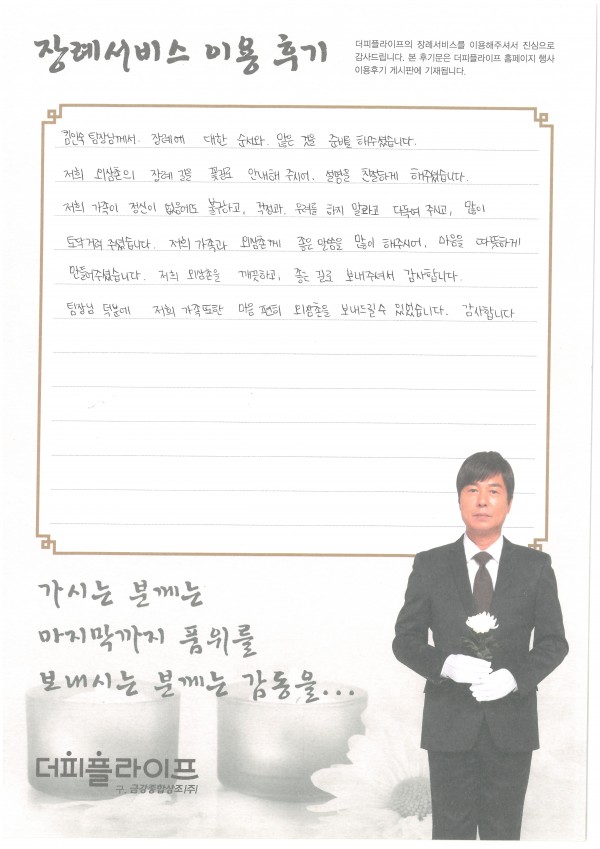 장례서비스 이용 후기
더피플라이프의 장례서비스를 이용해주셔서 진심으로
감사드립니다. 본 후기문은 더피플라이프 홈페이지 행사
이용후기 게시판에 기재됩니다.
팀장님께서. 장례에 대한 순서와. 많은 것을 준비를 해주셨습니다.
저희 외삼촌의 장례 길을 꽃길로 안내해 주시어, 설명을 친절하게 해주셨습니다.
저희 가족이 정신이 없음에도 불구하고, 걱정과. 우려를 하지 말라고 다독여 주시고, 많이
토닥거려 주셨습니다. 저희 가족과 외삼촌께 좋은 말씀을 많이 해주시어, 마음을 따뜻하게
만들어주셨습니다. 저희 외삼촌을 깨끗하고, 좋은 길로 보내주셔서 감사합니다.
팀장님 덕분에 저희 가족또한 마음 편히 외삼촌을 보내드릴수 있었습니다. 감사합니다
가시는 분께는
마지막까지 품위를
보내시는 분께는 감동을...
더피플라이프
구. 금강종합상조(주)